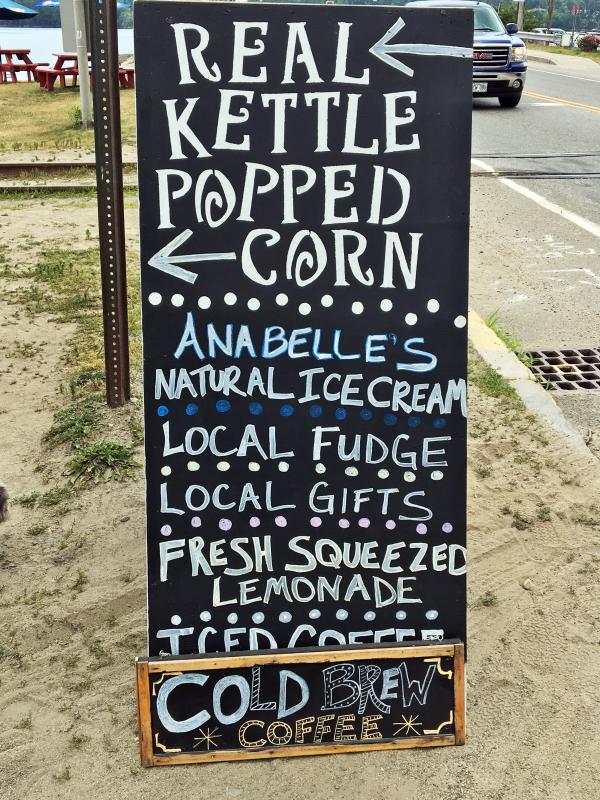 REAL
KETTLE
POPPED
CORN
ANABELLE'S
NATURAL ICE CREAM
LOCAL FUDGE
LOCAL GIFTS
FRESH SQUEEZED
LEMONADE
ICED COFFEE
COLD BREW
COFFEE